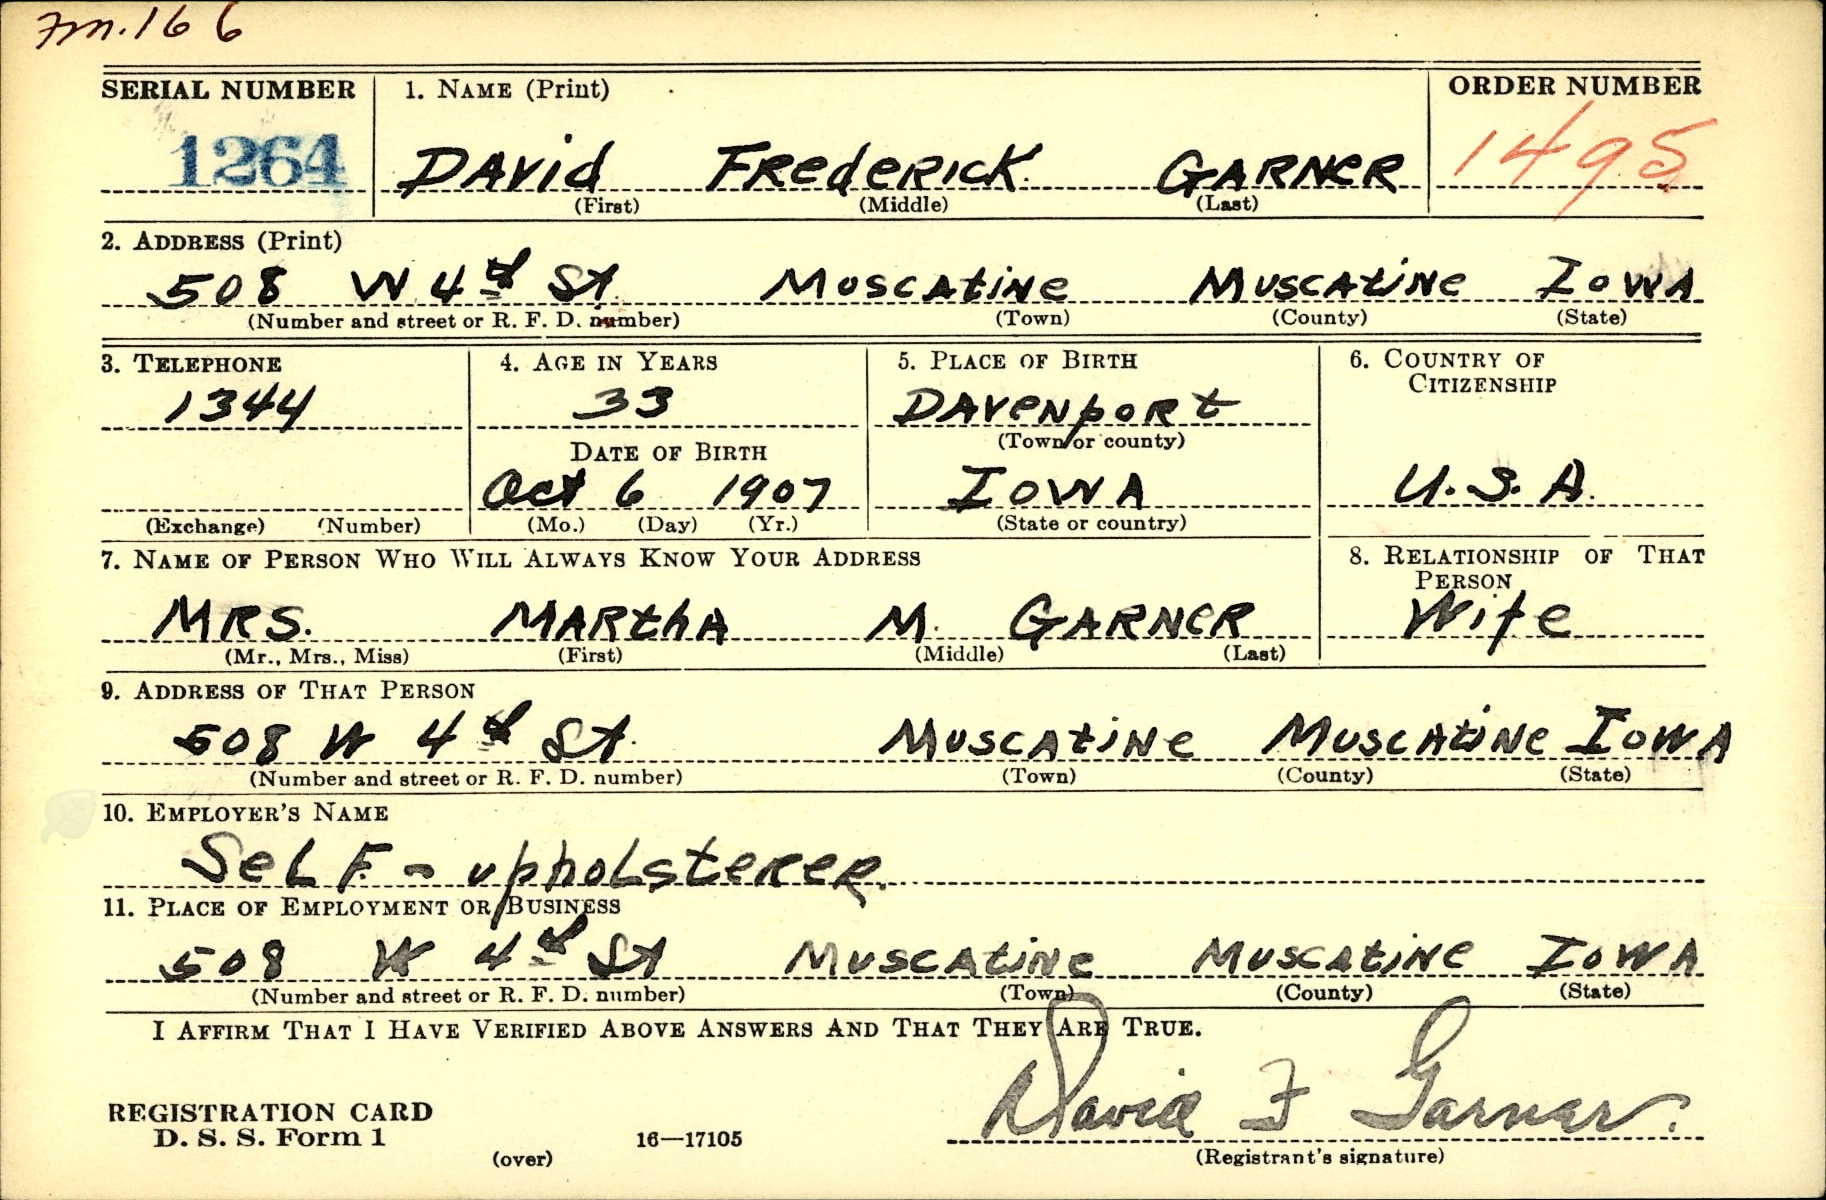 Fm. 166
SERIAL NUMBER 1. NAME (Print) ORDER NUMBER
1264 DAVid FRedeRICK GARNeR 1495
(First) (Middle) (Last)
2. ADDRESS (Print)
508 W 4th St MUSCAtiNe MUSCAtiNe IOWA
(Number and street or R. F. D. number) (Town) (County) (State)
3. TELEPHONE 4. AGE IN YEARS 5. PLACE OF BIRTH 6. COUNTRY OF CITIZENSHIP
1344 33 DAVeNpORt
(Town or county)
DATE OF BIRTH
Oct 6 1907 IOWA U.S.A.
(Exchange) (Number) (Mo.) (Day) (Yr.) (State or country)
7. NAME OF PERSON WHO WILL ALWAYS KNOW YOUR ADDRESS 8. RELATIONSHIP OF THAT PERSON
MRS. MARthA M. GARNeR Wife
(Mr., Mrs., Miss) (First) (Middle) (Last)
9. ADDRESS OF THAT PERSON
508 W 4th St. MUSCAtiNe MUSCAtiNe IOWA
(Number and street or R. F. D. number) (Town) (County) (State)
10. EMPLOYER'S NAME
SeLF - uphoLsteReR.
11. PLACE OF EMPLOYMENT OR BUSINESS
508 W 4th St MUSCAtiNe MUSCAtiNe IOWA
(Number and street or R. F. D. number) (Town) (County) (State)
I AFFIRM THAT I HAVE VERIFIED ABOVE ANSWERS AND THAT THEY ARE TRUE.
David F Garner.
REGISTRATION CARD
D. S. S. Form 1 16—17105
(over) (Registrant's signature)